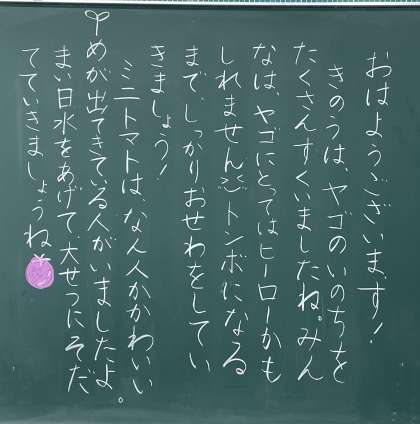 おはようございます!
きのうは、ヤゴのいのちを
たくさんすくいましたね。みん
なは、ヤゴにとってはヒーローかも
しれません。トンボになる
まで、しっかりおせわをしてい
きましょう!
ミニトマトは、なん人かかわいい
めが出てきている人がいましたよ。
まい日水をあげて、大せつにそだ
てていきましょうね